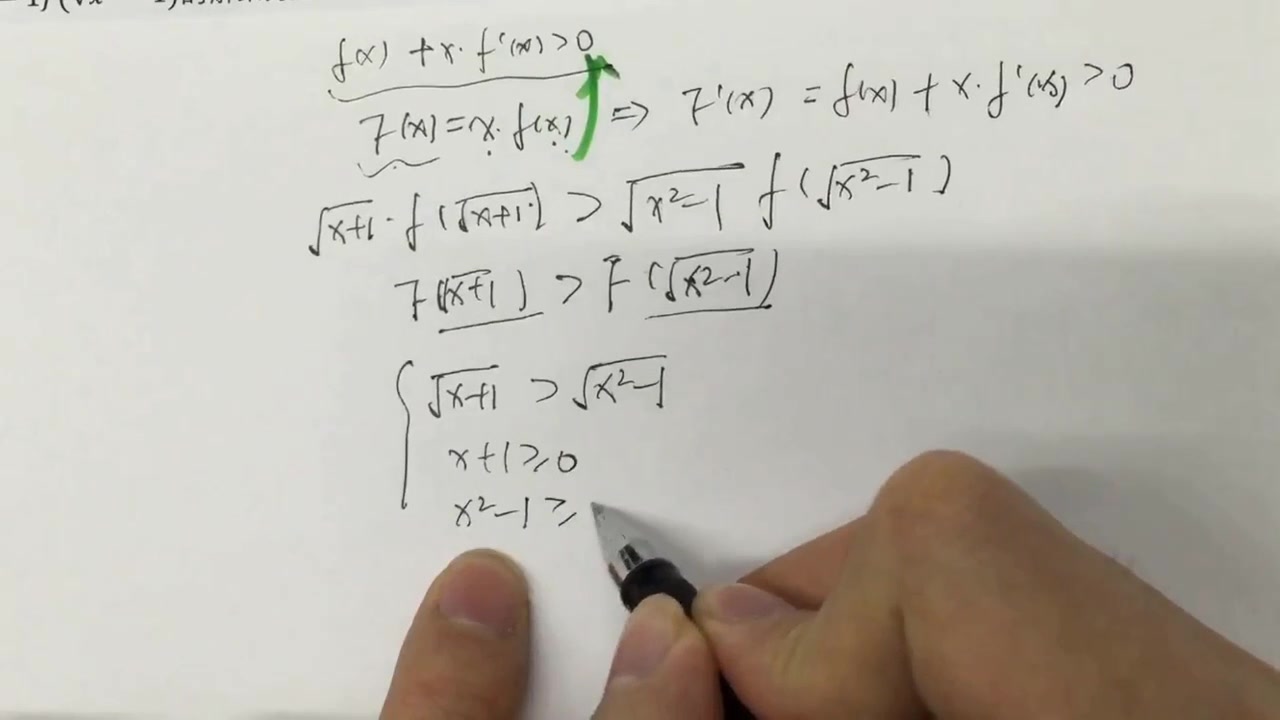 f(x) + x·f'(x) > 0
F(x) = x·f(x) ⇒ F'(x) = f(x) + x·f'(x) > 0
√(x+1)·f(√(x+1)) > √(x²-1) f(√(x²-1))
F(√(x+1)) > F(√(x²-1))
{ √(x+1) > √(x²-1)
x+1 ≥ 0
x²-1 ≥